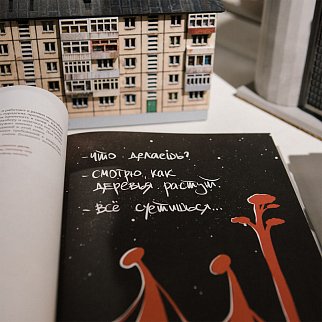 - Что делаешь?
- Смотрю, как
деревья растут.
- Всё суетишься...